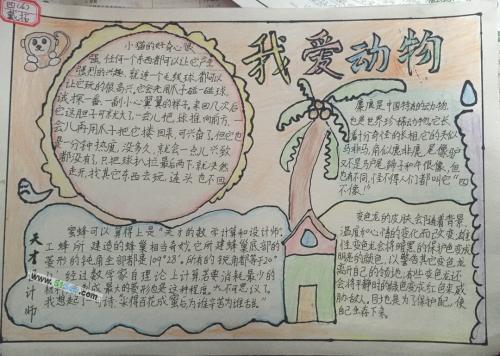 四(6)
戴拓
我爱动物
小猫的好奇心很
强，任何一个东西都可以让它产生
强烈的兴趣，就连一个毛线球，都可以
让它玩的很高兴，它会先用爪子碰一碰球，
试探一番，一副小心翼翼的样子，来回几次后
它这胆子可就大了，一会儿把球推向前方，一
会儿再用爪子把它搂回来，可兴奋了，但它也
是一分钟热度，没多久，就会一点儿兴致
都没有了，只把球扒拉最后两下，就决然
走开，找其它东西去玩，连头也不回
麋鹿是中国特有的动物，
也是世界珍稀动物，它长
着十分奇怪的长相，它的头似
马非马，角似鹿非鹿，尾像驴
又不是驴尾，蹄子和牛很像，但
也有不同，怪不得人们都叫它“四
不像”！
天才
计师
蜜蜂可以算得上是“天才的数学计算和设计师”，
工蜂所建造的蜂巢相当奇妙，它所建蜂巢底部的
菱形的钝角全部都是109°28′，所有的锐角都等于70°
经过数学家自理论上计算若要消耗最少的
成最大的菱形也是这种程度，九不可思议了，
我想起了句诗：“采得百花成蜜后为谁辛苦为谁甜”
变色龙的皮肤会随着背景、
温度和心情的变化而改变，雄
性变色龙会将暗黑的保护色变成
明亮的颜色，以警告其它变色龙
离开自己的领地，有些变色龙还
会将平静时的绿色变成红色来威
胁敌人，目地是为了保护自己，使
自己生存下来。